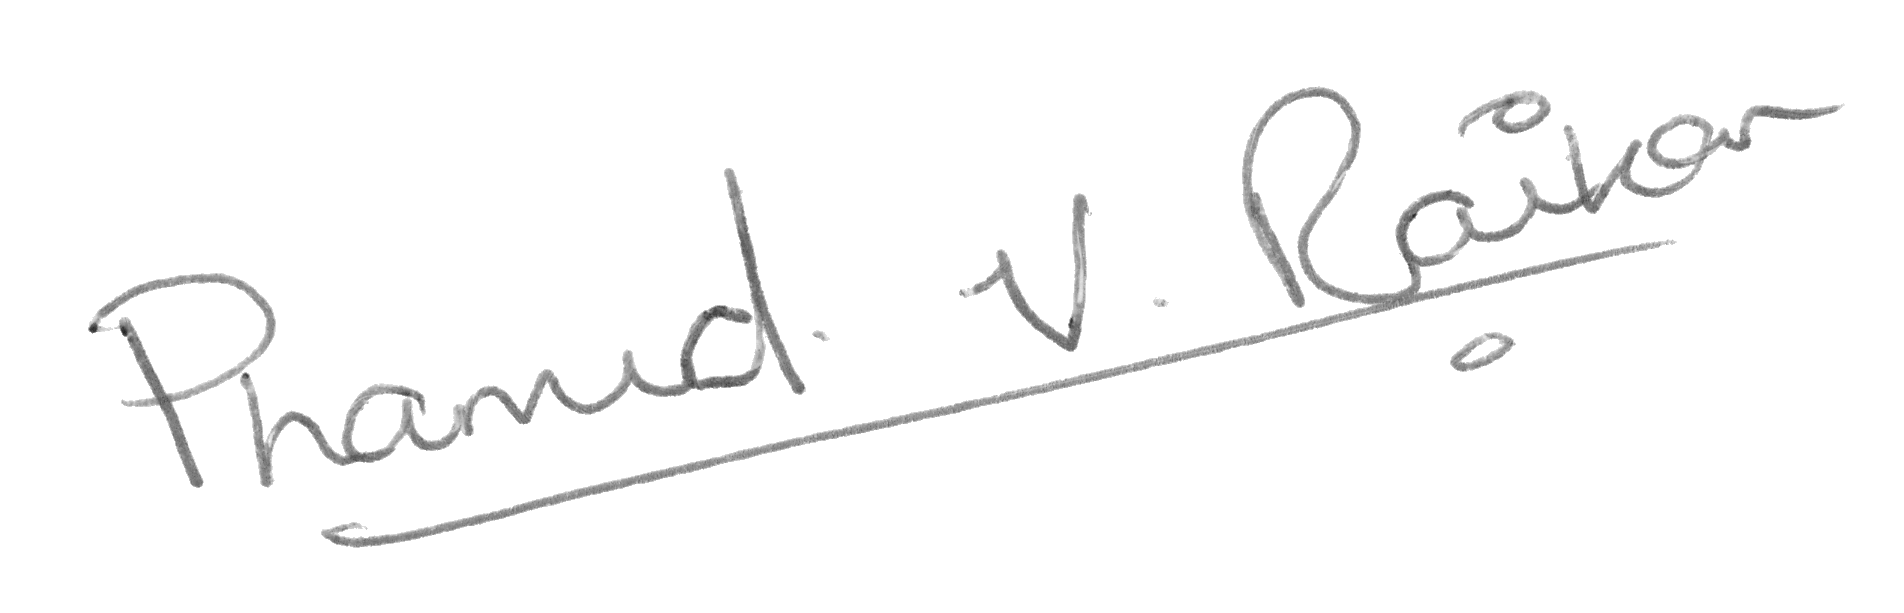 Pramod. V. Raikar